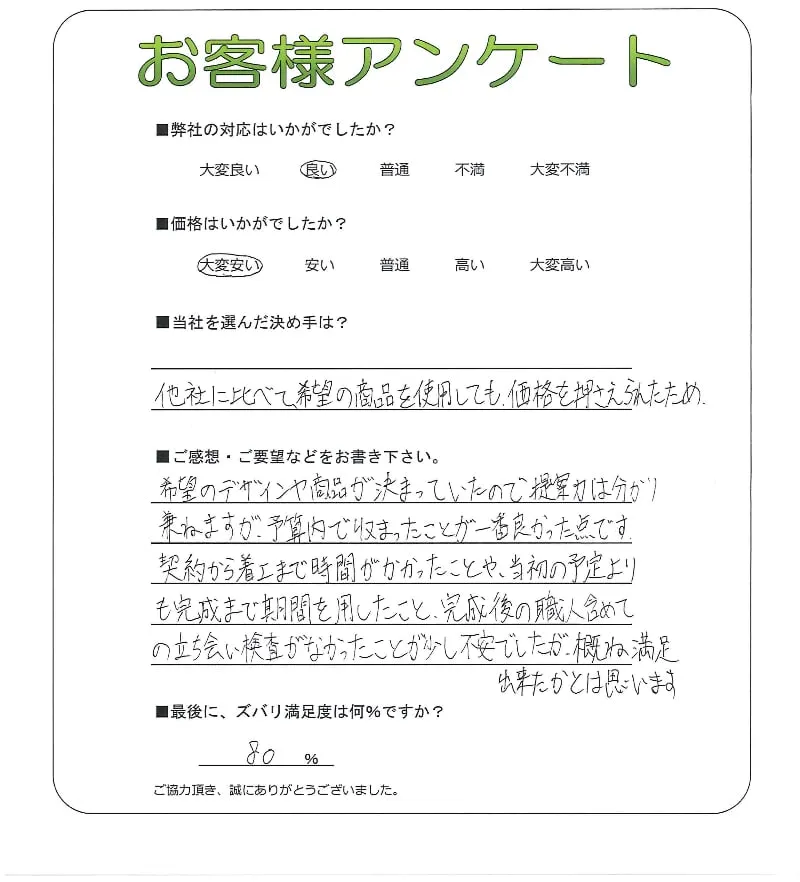 お客様アンケート
■弊社の対応はいかがでしたか？
大変良い 良い 普通 不満 大変不満
■価格はいかがでしたか？
大変安い 安い 普通 高い 大変高い
■当社を選んだ決め手は？
他社に比べて、希望の商品を使用しても、価格を押さえられたため。
■ご感想・ご要望などをお書き下さい。
希望のデザインや商品が決まっていたので提案力は分かり
兼ねますが、予算内で収まったことが一番良かった点です。
契約から着工まで時間がかかったことや、当初の予定より
も完成まで期間を用したこと、完成後の職人含めて
の立ち会い検査がなかったことが少し不安でしたが、概ね満足
出来たかとは思います
■最後に、ズバリ満足度は何％ですか？
80 ％
ご協力頂き、誠にありがとうございました。